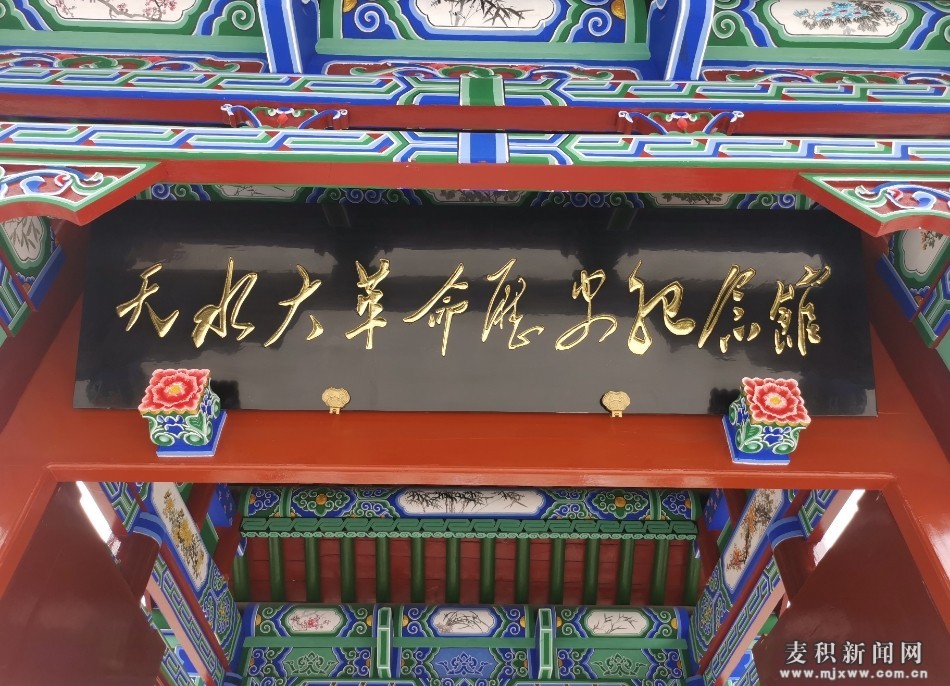 天水大革命历史纪念馆
麦积新闻网
www.mjxww.com.cn